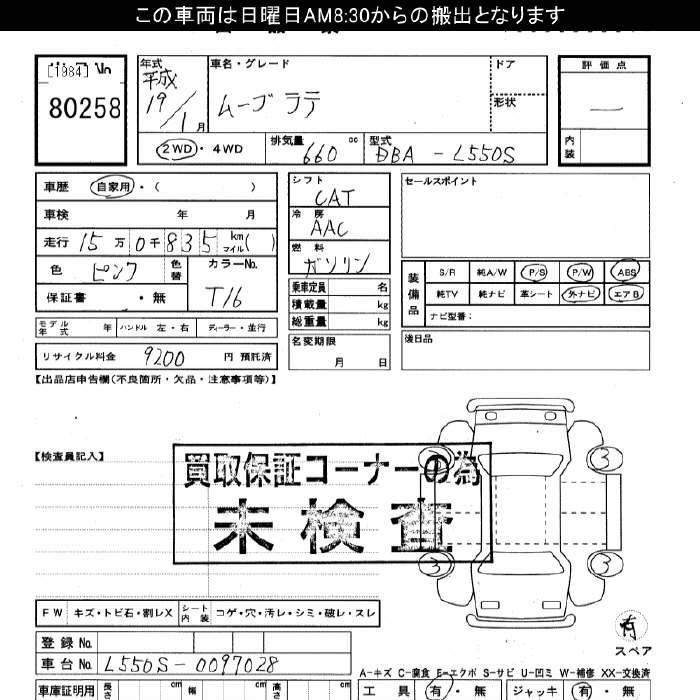 この車両は日曜日AM8:30からの搬出となります
[1984]
80258
年式
平成
19/1月
車名・グレード
ムーヴ ラテ
ドア
形状
評価点
—
内装
2WD・4WD
排気量 660 cc
型式 DBA - L550S
車歴 自家用・( )
車検 年 月
走行 15万0千835 km マイル( )
色 ピンク 色替
カラーNo. T16
保証書 ・無
モデル年式 年 ハンドル 左・右 ディーラー・並行
リサイクル料金 9200 円 預託済
シフト CAT
冷房 AAC
燃料 ガソリン
乗車定員 名
積載量 kg
総重量 kg
名変期限
月 日
セールスポイント
装備品
S/R 純A/W P/S P/W ABS
純TV 純ナビ 革シート 外ナビ エアB
ナビ型番:
後日品
【出品店申告欄(不良箇所・欠品・注意事項等)】
【検査員記入】
買取保証コーナーの為
未検査
3 3
3 3
有
スペア
FW キズ・トビ石・割レX シート内装 コゲ・穴・汚レ・シミ・破レ・スレ
登録No.
車台No. L550S-0097028
A-キズ C-腐食 E-エクボ S-サビ U-凹ミ W-補修 XX-交換済
車庫証明用 長さ cm 幅 cm 高さ cm
工具 有・無 ジャッキ 有・無